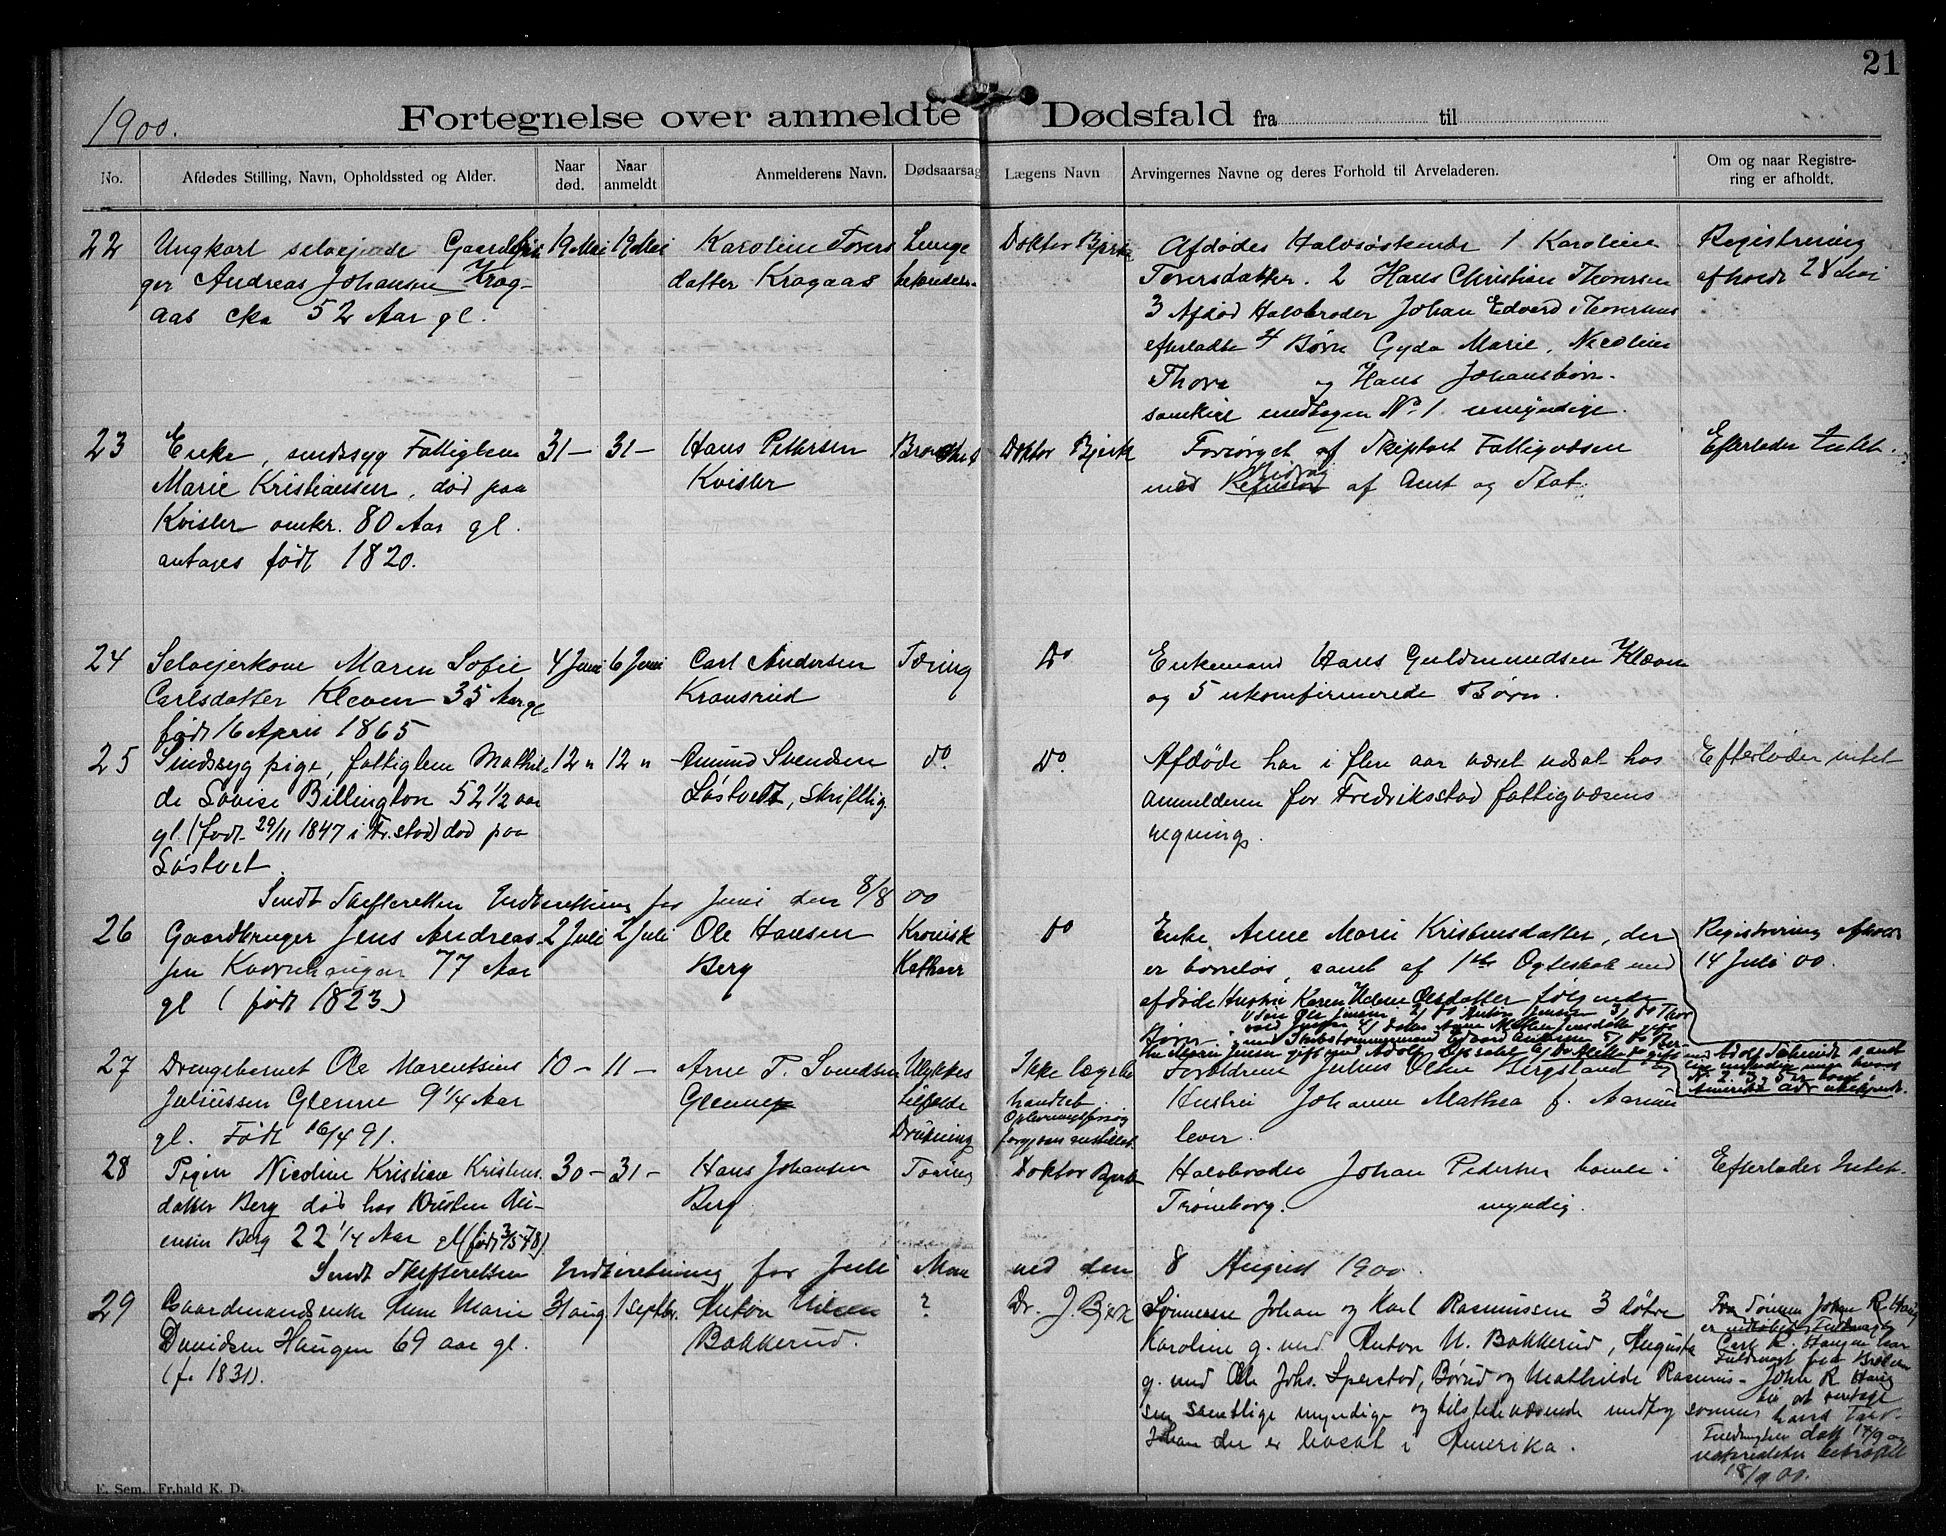 21
1900.
Fortegnelse over anmeldte Dødsfald fra til
No.
Afdødes Stilling, Navn, Opholdssted og Alder.
Naar død.
Naar anmeldt
Anmelderens Navn.
Dødsaarsag
Lægens Navn
Arvingernes Navne og deres Forhold til Arveladeren.
Om og naar Registrering er afholdt.
22
Ungkarl selvejende
ger Andreas Johansen Krog-
aas cka 52 Aar gl.
19 Mai
19 Mai
Karoline Tovers
datter Krogaas
Lunge
betændelse
Doktor Bjerke
Afdødes Halvsøskende 1 Karoline
Toversdatter. 2 Hans Christian Thoversen
3 Afdød Halvbroder Johan Edvard Thoversens
efterladte 4 Børn Gyda Marie, Nicoline
Thora og Hans Johansbørn.
samtlige undtagen No. 1 umyndige.
Registrering
afholdt 28 Mai
23
Enke, sindssyg Fattiglem
Marie Kristiansen, død paa
Kvisler omkr. 80 Aar gl.
antages født 1820.
31 —
31 —
Hans Pettersen
Kvisler
Doktor Bjerk
Forsørget af Skiptvet Fattigvæsen
med Bidrag af Amt og Stat.
Efterlader Intet.
24
Selvejerkone Maren Sofie
Carlsdatter Kleven 35 Aar gl
født 16 April 1865
4 Juni
6 Juni
Carl Andersen
Kransrud
Tæring
Do
Enkemand Hans Guldmundsen Kleven
og 5 ukonfirmerede Børn.
25
Sindssyg pige, fattiglem Mathil-
de Lovise Billington 52 1/2 aar
gl. (født 29/11 1847 i Fr.stad) død paa
Løstvet
12 "
12 "
Amund Svendsen
Løstvedt, skriftlig.
do
Do.
Afdøde har i flere aar været udsat hos
anmelderen for Fredriksstad fattigvæsens
regning.
Efterlader intet
Sendt Skifteretten Indberetning for Juni den 8/8 00
26
Gaardbruger Jens Andreas-
sen Kvernhaugen 77 Aar
gl (født 1823)
2 Juli
2 Juli
Ole Hansen
Berg
Kronisk
Katharr
do
Enke Anne Marie Kristensdatter, der
er barnløs, samt af 1ste Ægteskab med
afdøde Hustru Karen Helene Olsdatter følgende
Børn
Registrering afholdt
14 Juli 00.
27
Drengebarnet Ole Marentsius
Juliussen Glenne 9 1/4 Aar
gl. Født 16/4 91.
10 —
11 —
Arne T. Svendsen
Glenne
Ulykkes
tilfælde
Drukning
Ikke læge be
handlet.
Oplivningsforsøg
Forældrene Julius Olsen Bergsland og
Hustru Johanne Mathea f. Aarnes
lever.
28
Pigen Nicoline Kristine Kristens
datter Berg død hos Kristen
Berg 22 1/4 Aar gl (født 3/5 78)
30 —
31 —
Hans Johansen
Berg
Tæring
Doktor Bjerke
Halvbroder Johan Pedersen
Trømborg. myndig.
Efterlader Intet.
Sendt Skifteretten Indberetning for Juli Maaned den 8 August 1900.
29
Gaardmandsenke Anne Marie
Davidsen Haugen 69 aar gl.
(f. 1831).
31 aug.
1 septbr.
Anton Nilsen
Bakkerud.
?
Dr. J. Bjerk
Sønnerne Johan og Karl Rasmussen 3 døtre
Karoline g. med Anton N. Bakkerud, Augusta
g. med Ole Johs. Sperstad, Børud og Mathilde Rasmus-
sen samtlige myndige og tilstedeværende undtag
Johan der er bosat i Amerika.
Fra Sønnen Johan R. Haug
er indkommet Fuldmagt
18/9 00.
E. Sem, Fr.hald K. D.